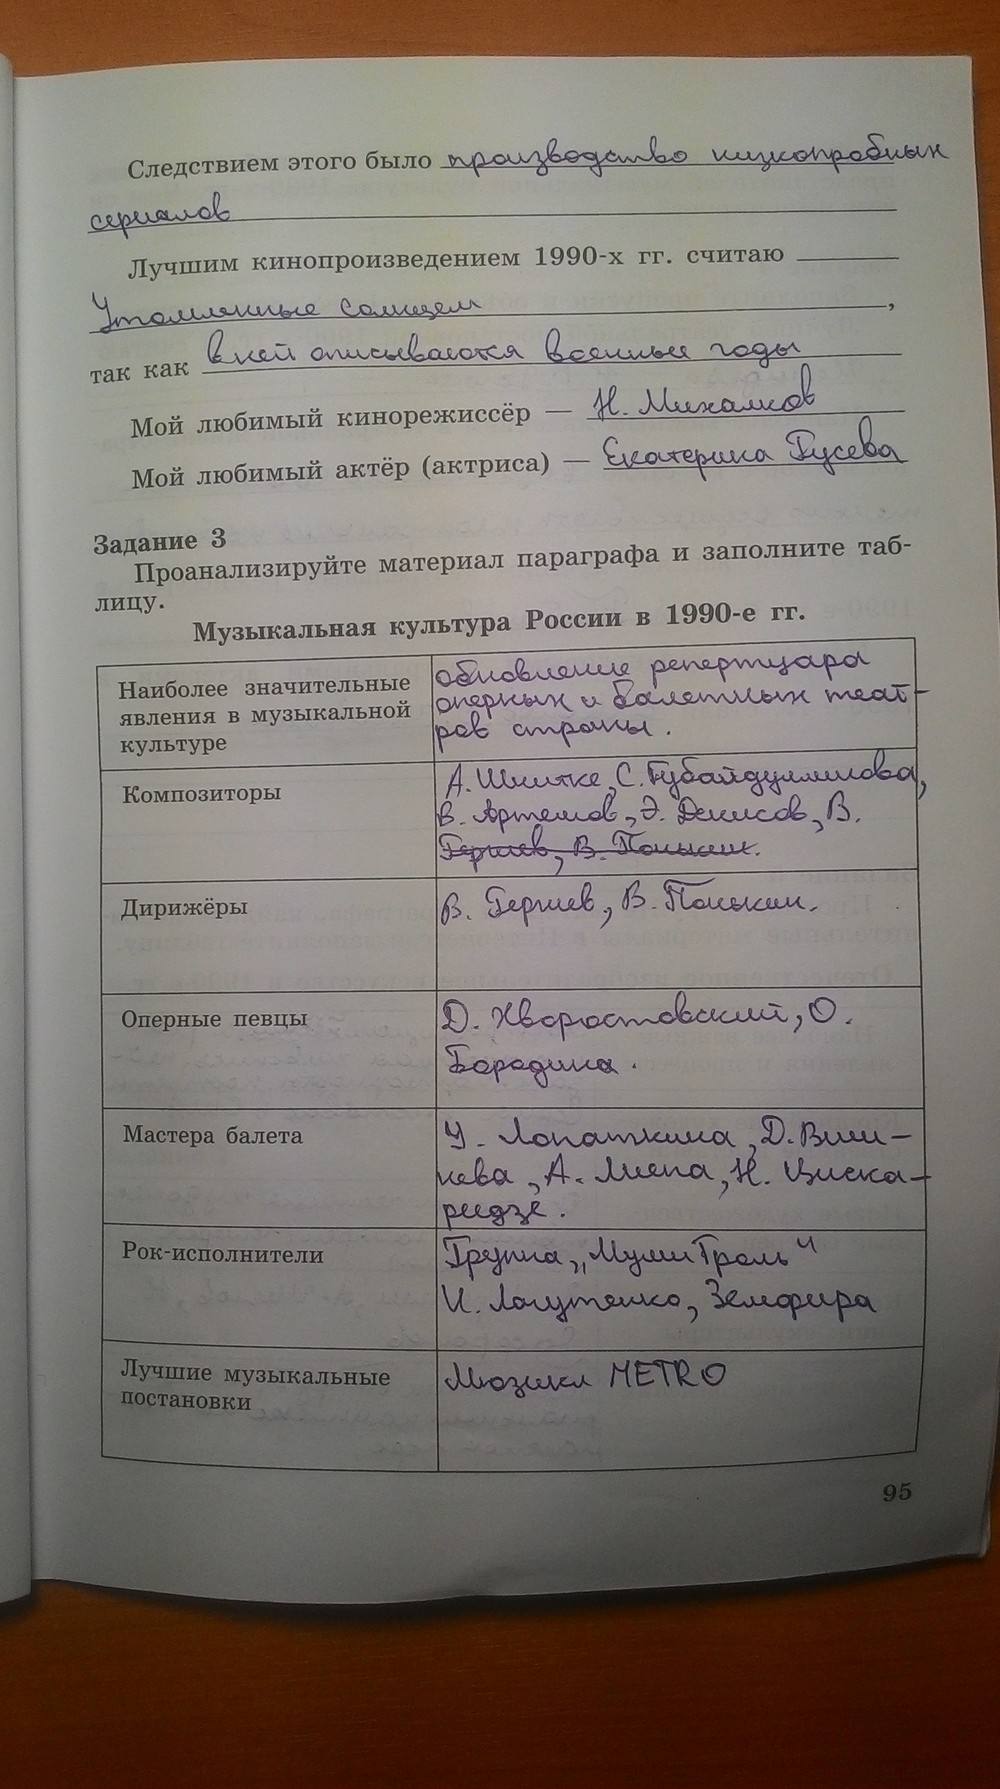 Следствием этого было производство низкопробных
сериалов
Лучшим кинопроизведением 1990-х гг. считаю
Утомленные солнцем ,
так как в ней описываются военные годы
Мой любимый кинорежиссёр — Н. Михалков
Мой любимый актёр (актриса) — Екатерина Гусева
Задание 3
Проанализируйте материал параграфа и заполните таб-
лицу.
Музыкальная культура России в 1990-е гг.
Наиболее значительные
явления в музыкальной
культуре
обновление репертуара
оперных и балетных теат-
ров страны.
Композиторы
А. Шнитке, С. Губайдуллинова,
В. Артемов, Э. Денисов, В.
Гергиев, В. Понькин.
Дирижёры
В. Гергиев, В. Понькин.
Оперные певцы
Д. Хворостовский, О.
Бородина.
Мастера балета
У. Лопаткина, Д. Виш-
нева, А. Лиепа, Н. Циска-
ридзе.
Рок-исполнители
Группа „Муми Троль"
И. Лагутенко, Земфира
Лучшие музыкальные
постановки
Мюзикл METRO
95